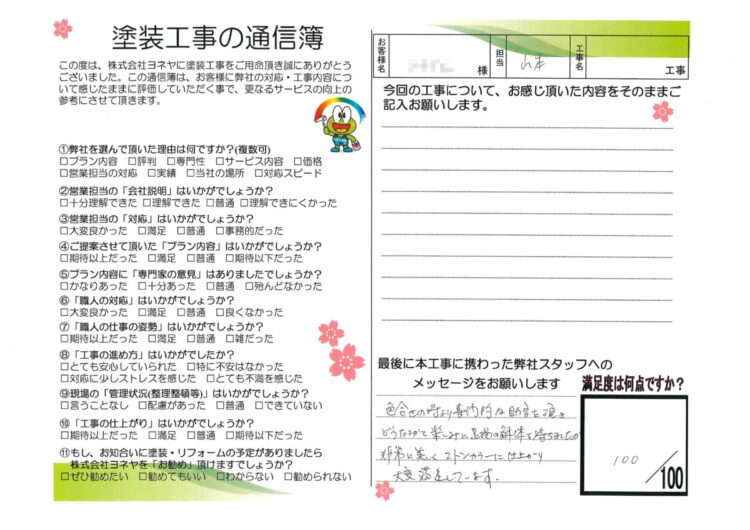 塗装工事の通信簿
この度は、株式会社ヨネヤに塗装工事をご用命頂き誠にありがとう
ございました。この通信簿は、お客様に弊社の対応・工事内容につ
いて感じたままに評価していただく事で、更なるサービスの向上の
参考にさせて頂きます。
①弊社を選んで頂いた理由は何ですか?(複数可)
□プラン内容 □評判 □専門性 □サービス内容 □価格
□営業担当の対応 □実績 □当社の場所 □対応スピード
②営業担当の「会社説明」はいかがでしょうか?
□十分理解できた □理解できた □普通 □理解できにくかった
③営業担当の「対応」はいかがでしょうか?
□大変良かった □満足 □普通 □事務的だった
④ご提案させて頂いた「プラン内容」はいかがでしょうか?
□期待以上だった □満足 □普通 □期待以下だった
⑤プラン内容に「専門家の意見」はありましたでしょうか?
□かなりあった □十分あった □普通 □殆んどなかった
⑥「職人の対応」はいかがでしょうか?
□大変良かった □満足 □普通 □良くなかった
⑦「職人の仕事の姿勢」はいかがでしょうか?
□期待以上だった □満足 □普通 □雑だった
⑧「工事の進め方」はいかがでしたか?
□とても安心していられた □特に不安はなかった
□対応に少しストレスを感じた □とても不満を感じた
⑨現場の「管理状況(整理整頓等)」はいかがでしょうか?
□言うことなし □配慮があった □普通 □できていない
⑩「工事の仕上がり」はいかがでしょうか?
□期待以上だった □満足 □普通 □期待以下だった
⑪もし、お知合いに塗装・リフォームの予定がありましたら
株式会社ヨネヤを「お勧め」頂けますでしょうか?
□ぜひ勧めたい □勧めてもいい □わからない □勧められない
お客様名 様 担当 山本 工事名 工事
今回の工事について、お感じ頂いた内容をそのままご
記入お願いします。
最後に本工事に携わった弊社スタッフへの
メッセージをお願いします
満足度は何点ですか?
色合せの時より専門的な助言を頂き
どうなるかと楽しみに足場の解体を待ちました
非常に美しく 2トンカラーに仕上がり
大変満足しています。
100
/100